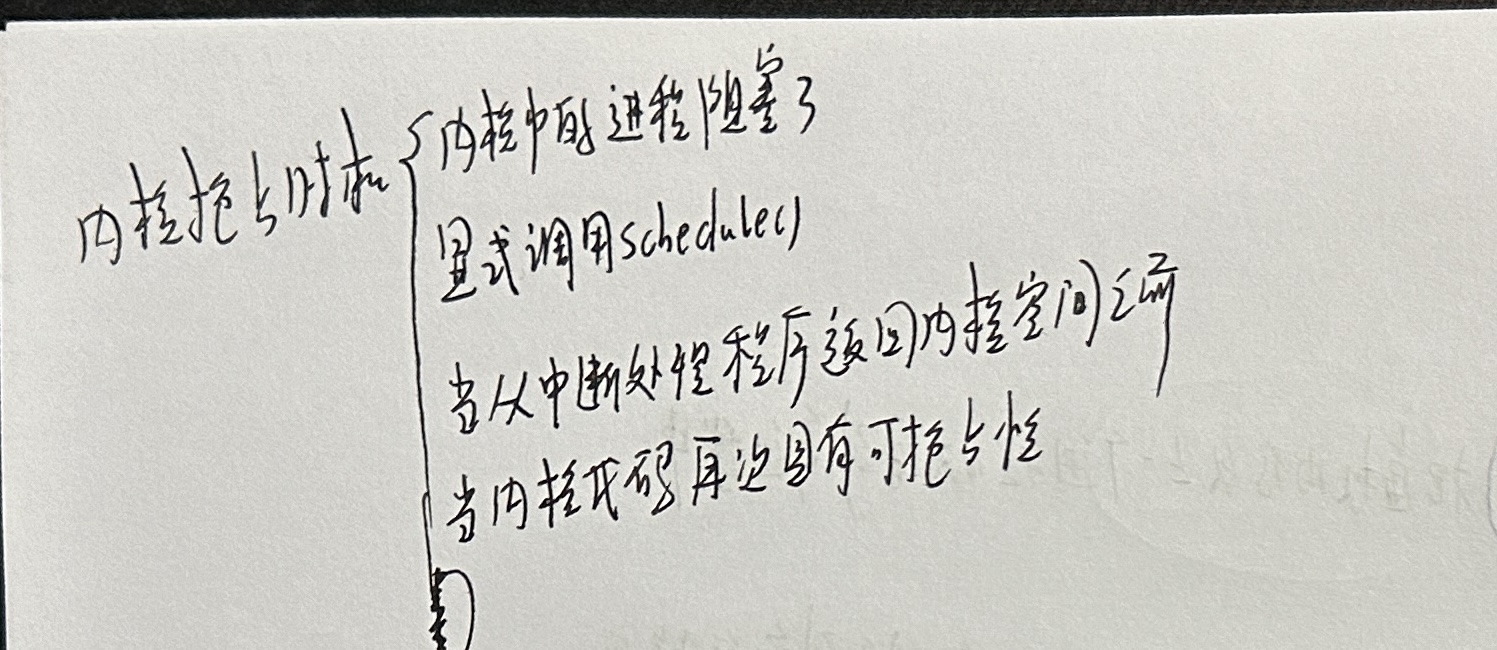 内核抢占时机
内核中的进程阻塞了
显式调用schedule()
当从中断处理程序返回内核空间之前
当内核代码再次具有可抢占性